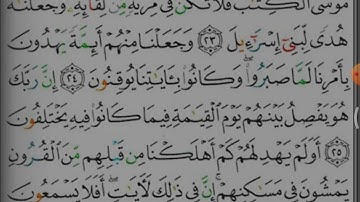 موسى ٱلۡكِتَٰبَ فَلَا تَكُن فِي مِرۡيَةٖ مِّن لِّقَآئِهِۦۖ وَجَعَلۡنَٰهُ
هُدٗى لِّبَنِيٓ إِسۡرَٰٓءِيلَ ٢٣ وَجَعَلۡنَا مِنۡهُمۡ أَئِمَّةٗ يَهۡدُونَ
بِأَمۡرِنَا لَمَّا صَبَرُواْۖ وَكَانُواْ بِـَٔايَٰتِنَا يُوقِنُونَ ٢٤ إِنَّ رَبَّكَ
هُوَ يَفۡصِلُ بَيۡنَهُمۡ يَوۡمَ ٱلۡقِيَٰمَةِ فِيمَا كَانُواْ فِيهِ يَخۡتَلِفُونَ
٢٥ أَوَلَمۡ يَهۡدِ لَهُمۡ كَمۡ أَهۡلَكۡنَا مِن قَبۡلِهِم مِّنَ ٱلۡقُرُونِ
يَمۡشُونَ فِي مَسَٰكِنِهِمۡۚ إِنَّ فِي ذَٰلِكَ لَأٓيَٰتٍۚ أَفَلَا يَسۡمَعُونَ